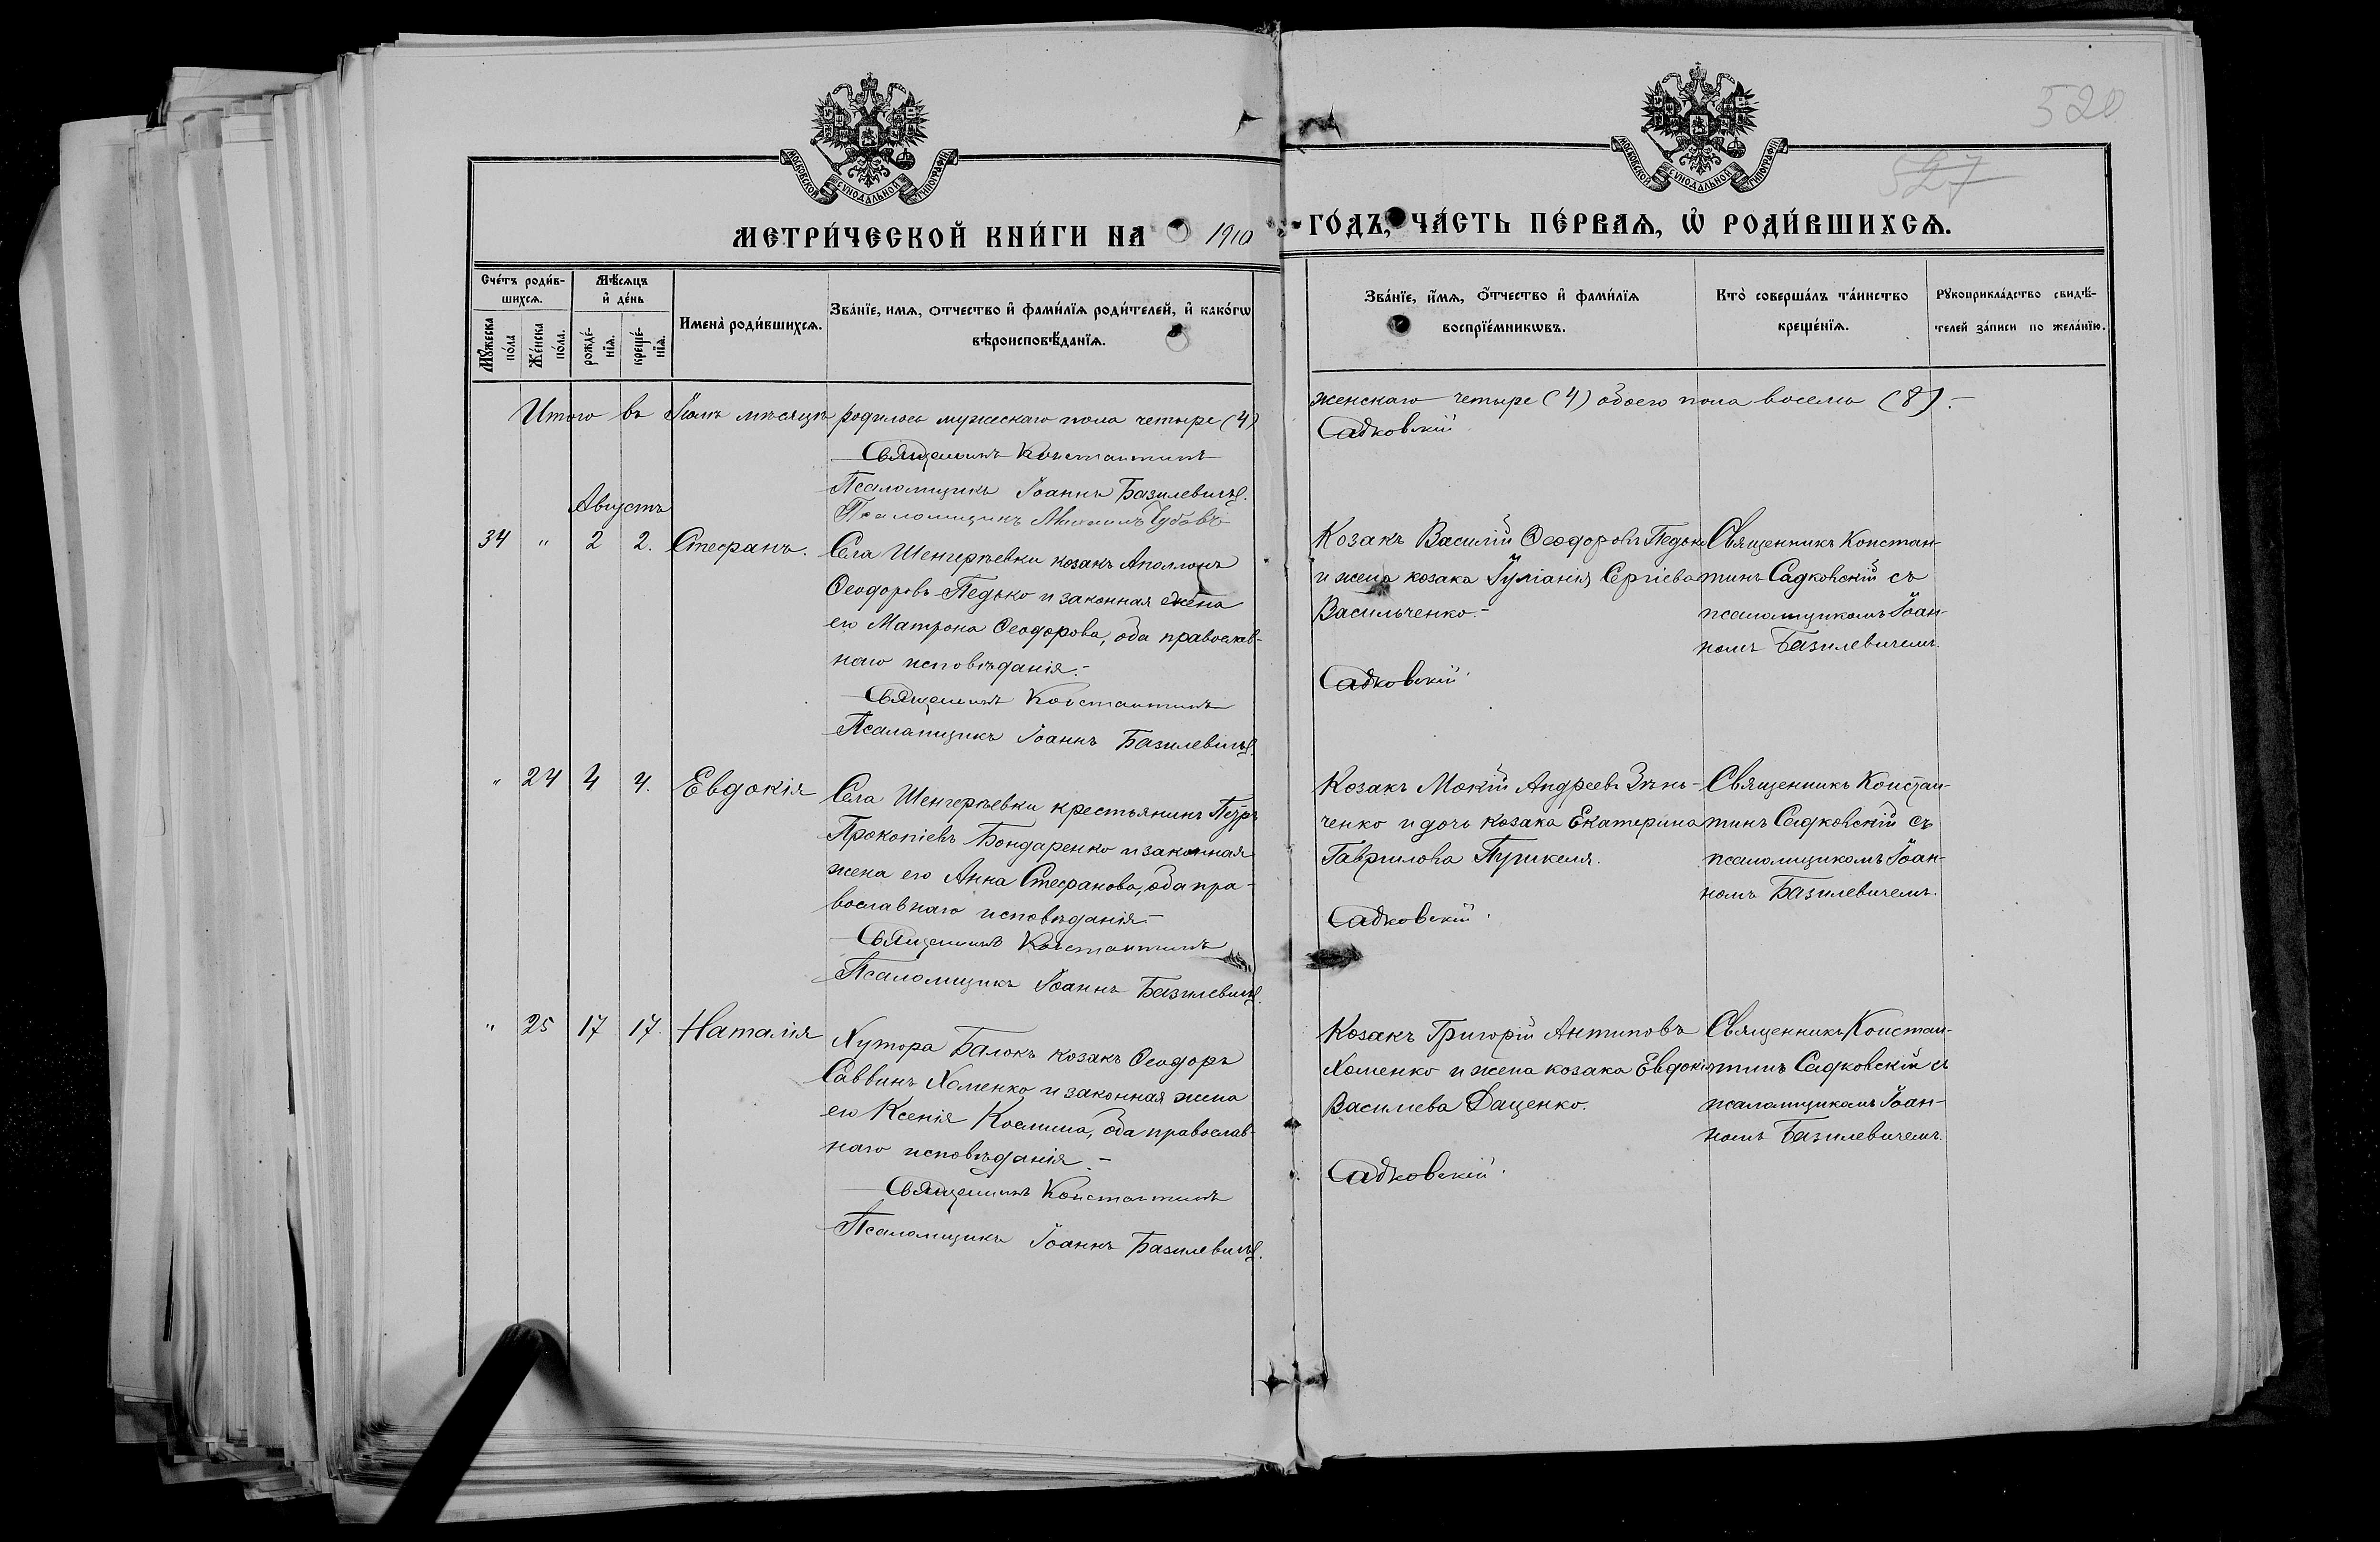 520
527
МОСКОВСКОЙ СУНОДАЛЬНОЙ ТИПОГРАФІИ
МОСКОВСКОЙ СУНОДАЛЬНОЙ ТИПОГРАФІИ
МЕТРИ́ЧЕСКОЙ КНИ́ГИ НА 1910 ГО́ДЪ, ЧА́СТЬ ПЕ́РВАѦ, Ѿ РОДИ́ВШИХСѦ.
Сче́тъ роди́в-
шихсѧ.
Мꙋ́жеска
по́ла
Же́нска
по́ла.
Мѣ́сѧцъ
и҆ де́нь
рожде́-
нїѧ.
креще́-
нїѧ.
Имена̀ роди́вшихсѧ.
Зва́нїе, имѧ, ѻтчество и҆ фами́лїѧ роди́телей, и҆ како́гѡ
вѣроисповѣ́данїѧ.
Зва́нїе, и҆́мѧ, ѻ҆́тчество и҆ фами́лїѧ
воспрїе́мникѡвъ.
Кто̀ соверша́лъ та́инство
креще́нїѧ.
Рꙋкоприкла́дство свидѣ́-
телей за́писи по жела́нїю.
Итого въ Іюлѣ мѣсяцѣ родилось мужескаго пола четыре (4)
женскаго четыре (4) обоего пола восемь (8).
Священникъ Константинъ
Садковскій
Псаломщикъ Іоаннъ Базилевичъ.
Псаломщикъ
Августъ
34 " 2 2. Стефанъ.
Села Шенгерѣевки козакъ Аполлонъ
Ѳеодоровъ Педько и законная жена
его Матрона Ѳеодорова, оба православ-
наго исповѣданія.-
Священникъ Константинъ
Псаломщикъ Іоаннъ Базилевичъ.
Козакъ Василій Ѳеодоровъ Педько
и жена козака Іуліанія Сергіева
Васильченко.-
Садковскій.
Священникъ Констан-
тинъ Садковскій съ
псаломщикомъ Іоан-
номъ Базилевичемъ.
" 24 4 4. Евдокія
Села Шенгерѣевки крестьянинъ Петръ
Прокопіевъ Бондаренко и законная
жена его Анна Стефанова, оба пра-
вославнаго исповѣданія.-
Священникъ Константинъ
Псаломщикъ Іоаннъ Базилевичъ.
Козакъ Мокій Андреевъ Зѣнь-
ченко и дочь козака Екатерина
Гаврилова Пушкеля.
Садковскій.
Священникъ Констан-
тинъ Садковскій съ
псаломщикомъ Іоан-
номъ Базилевичемъ.
" 25 17 17. Наталія
Хутора Балокъ козакъ Ѳеодоръ
Саввинъ Хоменко и законная жена
его Ксенія Космина, оба православ-
наго исповѣданія.-
Священникъ Константинъ
Псаломщикъ Іоаннъ Базилевичъ.
Козакъ Григорій Антиповъ
Хоменко и жена козака Евдокія
Василиева Даценко.
Садковскій.
Священникъ Констан-
тинъ Садковскій съ
псаломщикомъ Іоан-
номъ Базилевичемъ.